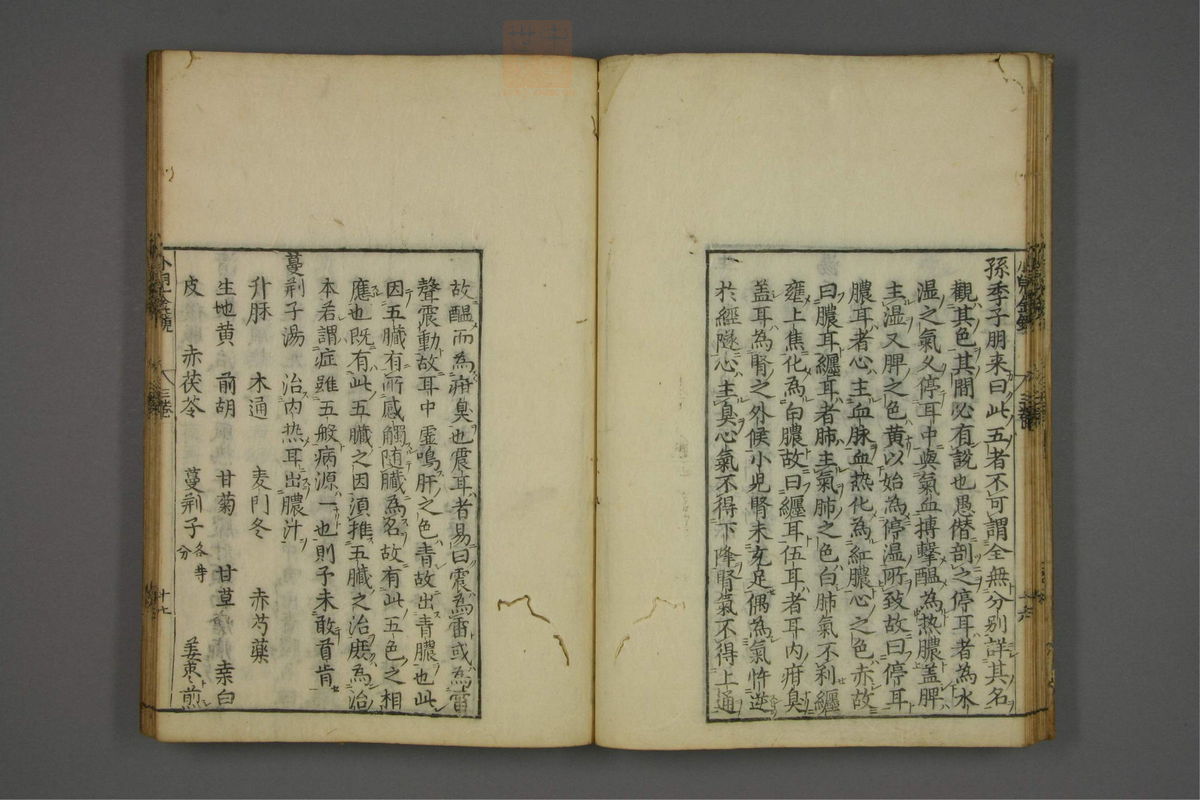 孫季子朋来曰此五者不可謂全無分別詳其名
觀其色其間必有說也愚僣剖之停耳者為水
湿之氣久停耳中與氣血搏擊醖為热膿盖脾
主湿又脾之色黄以始為停温所致故曰停耳
膿耳者心主血脉血热化為紅膿心之色赤故
曰膿耳纏耳者肺主氣肺之色白肺氣不利纏
壅上焦化為白膿故曰纏耳伍耳者耳内疳臭
盖耳為腎之外候小児腎未充足偶為氣忤逆
於經隧心主臭心氣不得下降腎氣不得上通
故醖而為疳臭也震耳者易曰震為雷或為雷
聲震動故耳中虚鳴肝之色青故出青膿也此
因五臓有所感觸随臓為名故有此五色之相
應也既有此五臓之因須推五臓之治庶為治
本若謂症雖五般病源一也則予未敢首肯
蔓荊子湯 治内热耳出膿汁
升麻 木通 麦門冬 赤芍藥
生地黄 前胡 甘菊 甘草 桑白
皮 赤茯苓 蔓荊子各等分 姜枣煎
三卷
十七